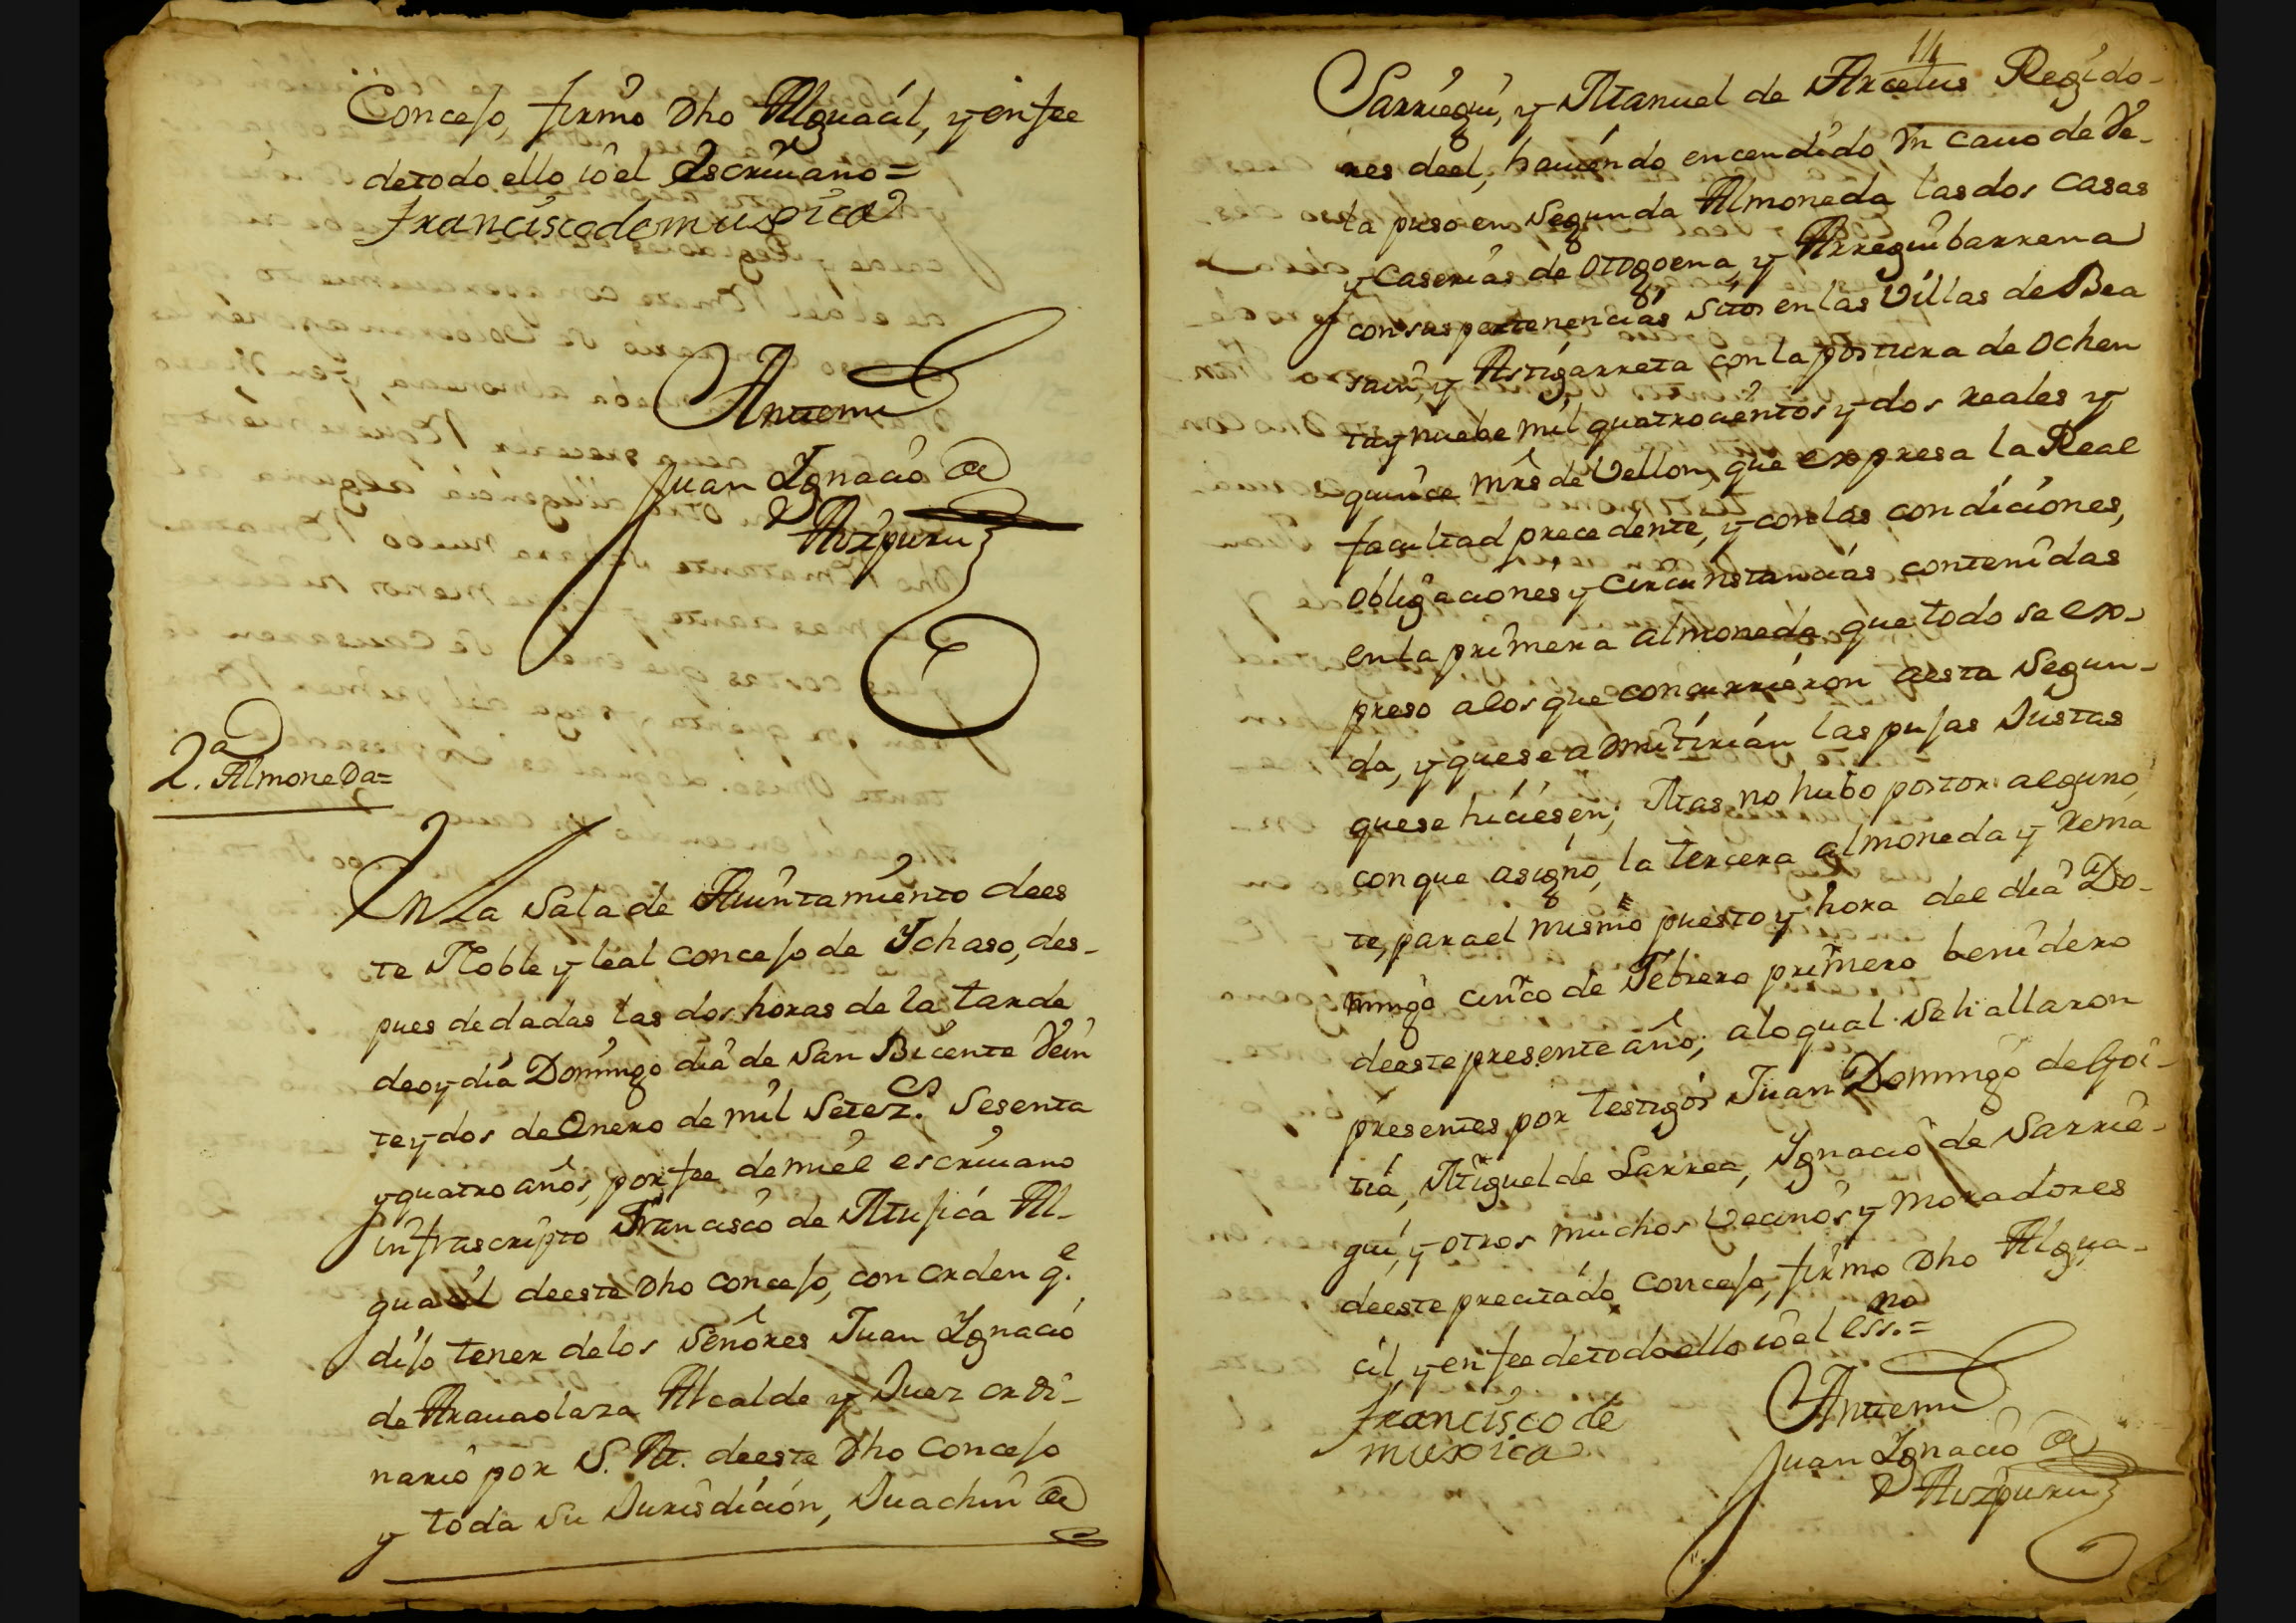 Concejo, firmo Dho Alguacil, y en fee
de todo ello io el Escriuano =
Francisco de muxica
Antemi
Juan Ygnacio de
Aizpuru
2.a Almoneda=
En La Sala de Aiuntamiento de es
te Noble y leal concejo de Ychaso, des-
pues de dadas las dos horas de la tarde
de oy dia Domingo dia de San Bicente Vein
te y dos de Enero de mil Setez.s Sesenta
y quatro años, por fee de mi el escriuano
infrascripto Francisco de Mujica Al-
guacil de este Dho concejo, con orden q.e
dijo tener de los Señores Juan Ygnacio
de Arauaolaza Alcalde y Juez ordi-
nario por S. M. de este Dho Concejo
y toda su Jurisdicion, Juachin de
14
Sarriegui, y Manuel de Arcelus Regido-
res de el, hauiendo encendido Vn cauo de Ve-
la puso en Segunda Almoneda las dos casas
y Caserias de Otogoena, y Arreguibarrena
con sus pertenencias sitos en las Villas de Bea
sain, y Astigarreta con la postura de ochen
ta y nuebe mil quatrocientos y dos reales y
quince mrs de Vellon, que expresa la Real
facultad precedente, y con las condiciones,
obligaciones y circunstancias contenidas
en la primera almoneda, que todo se ex-
preso a los que concurrieron a esta Segun-
da, y que se admitirian las pujas Justas
que se hiciesen; Mas no hubo postor alguno,
con que asigno, la tercera almoneda y rema
te, para el mismo puesto y hora del dia Do-
mingo cinco de Febrero primero benidero
de este presente año; a lo qual se hallaron
presentes por testigos Juan Domingo de Goi-
tia, Miguel de Larrea, Ygnacio de Sarrie-
gui, y otros muchos Vecinos y moradores
de este precitado concejo, firmo Dho Algua-
cil, y en fee de todo ello io el ess.no =
Francisco de
muxica
Antemi
Juan Ygnacio de
Aizpuru